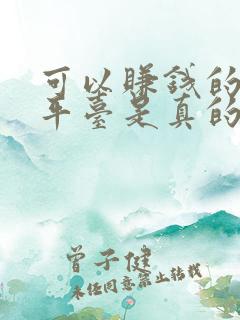 可以賺錢的
平臺是真的
曾子健
未经同意禁止转载